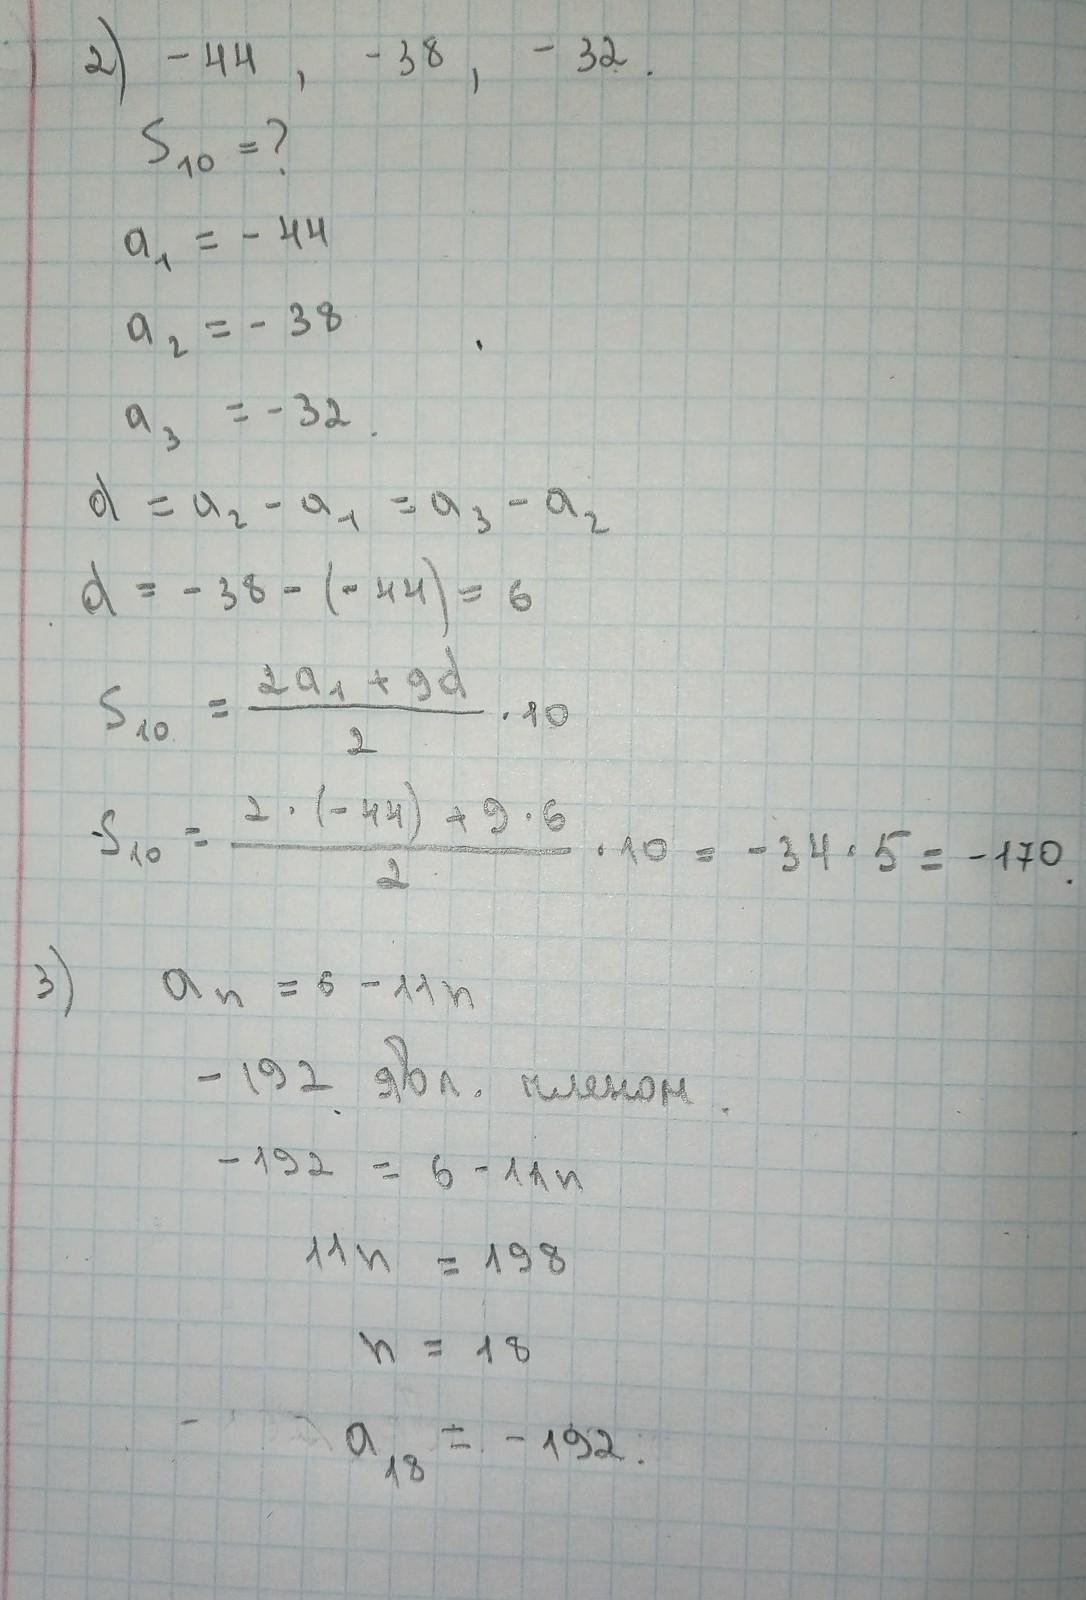 2) -44, -38, -32.
S₁₀ = ?
a₁ = -44
a₂ = -38
a₃ = -32.
d = a₂ - a₁ = a₃ - a₂
d = -38 - (-44) = 6
S₁₀ = (2a₁ + 9d)/2 · 10
S₁₀ = (2·(-44) + 9·6)/2 · 10 = -34·5 = -170.
3) aₙ = 6 - 11n
-192 явл. членом.
-192 = 6 - 11n
11n = 198
n = 18
a₁₈ = -192.